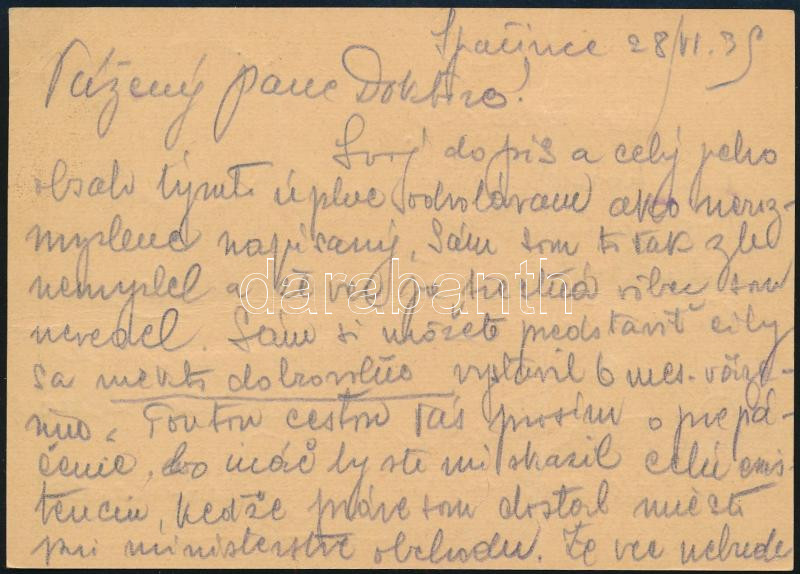 Špačince 28/VI.35
Vážený pane Doktore!
Svoj dopis a celý jeho
obsah týmto úplne odvolávam ako neroz-
myslene napísaný, sám som to tak zle
nemyslel a že vec je trestná vôbec som
nevedel. Sám si môžete predstaviť či by
sa niekto dobrovoľne vystavil 6 mes. väze-
niu. Touto cestou Vás prosím o prepá-
čenie, bo ináč by ste mi skazil celú exis-
tenciu, keďže práve som dostal miesto
pri ministerstve obchodu. Že vec nebude
darabanth